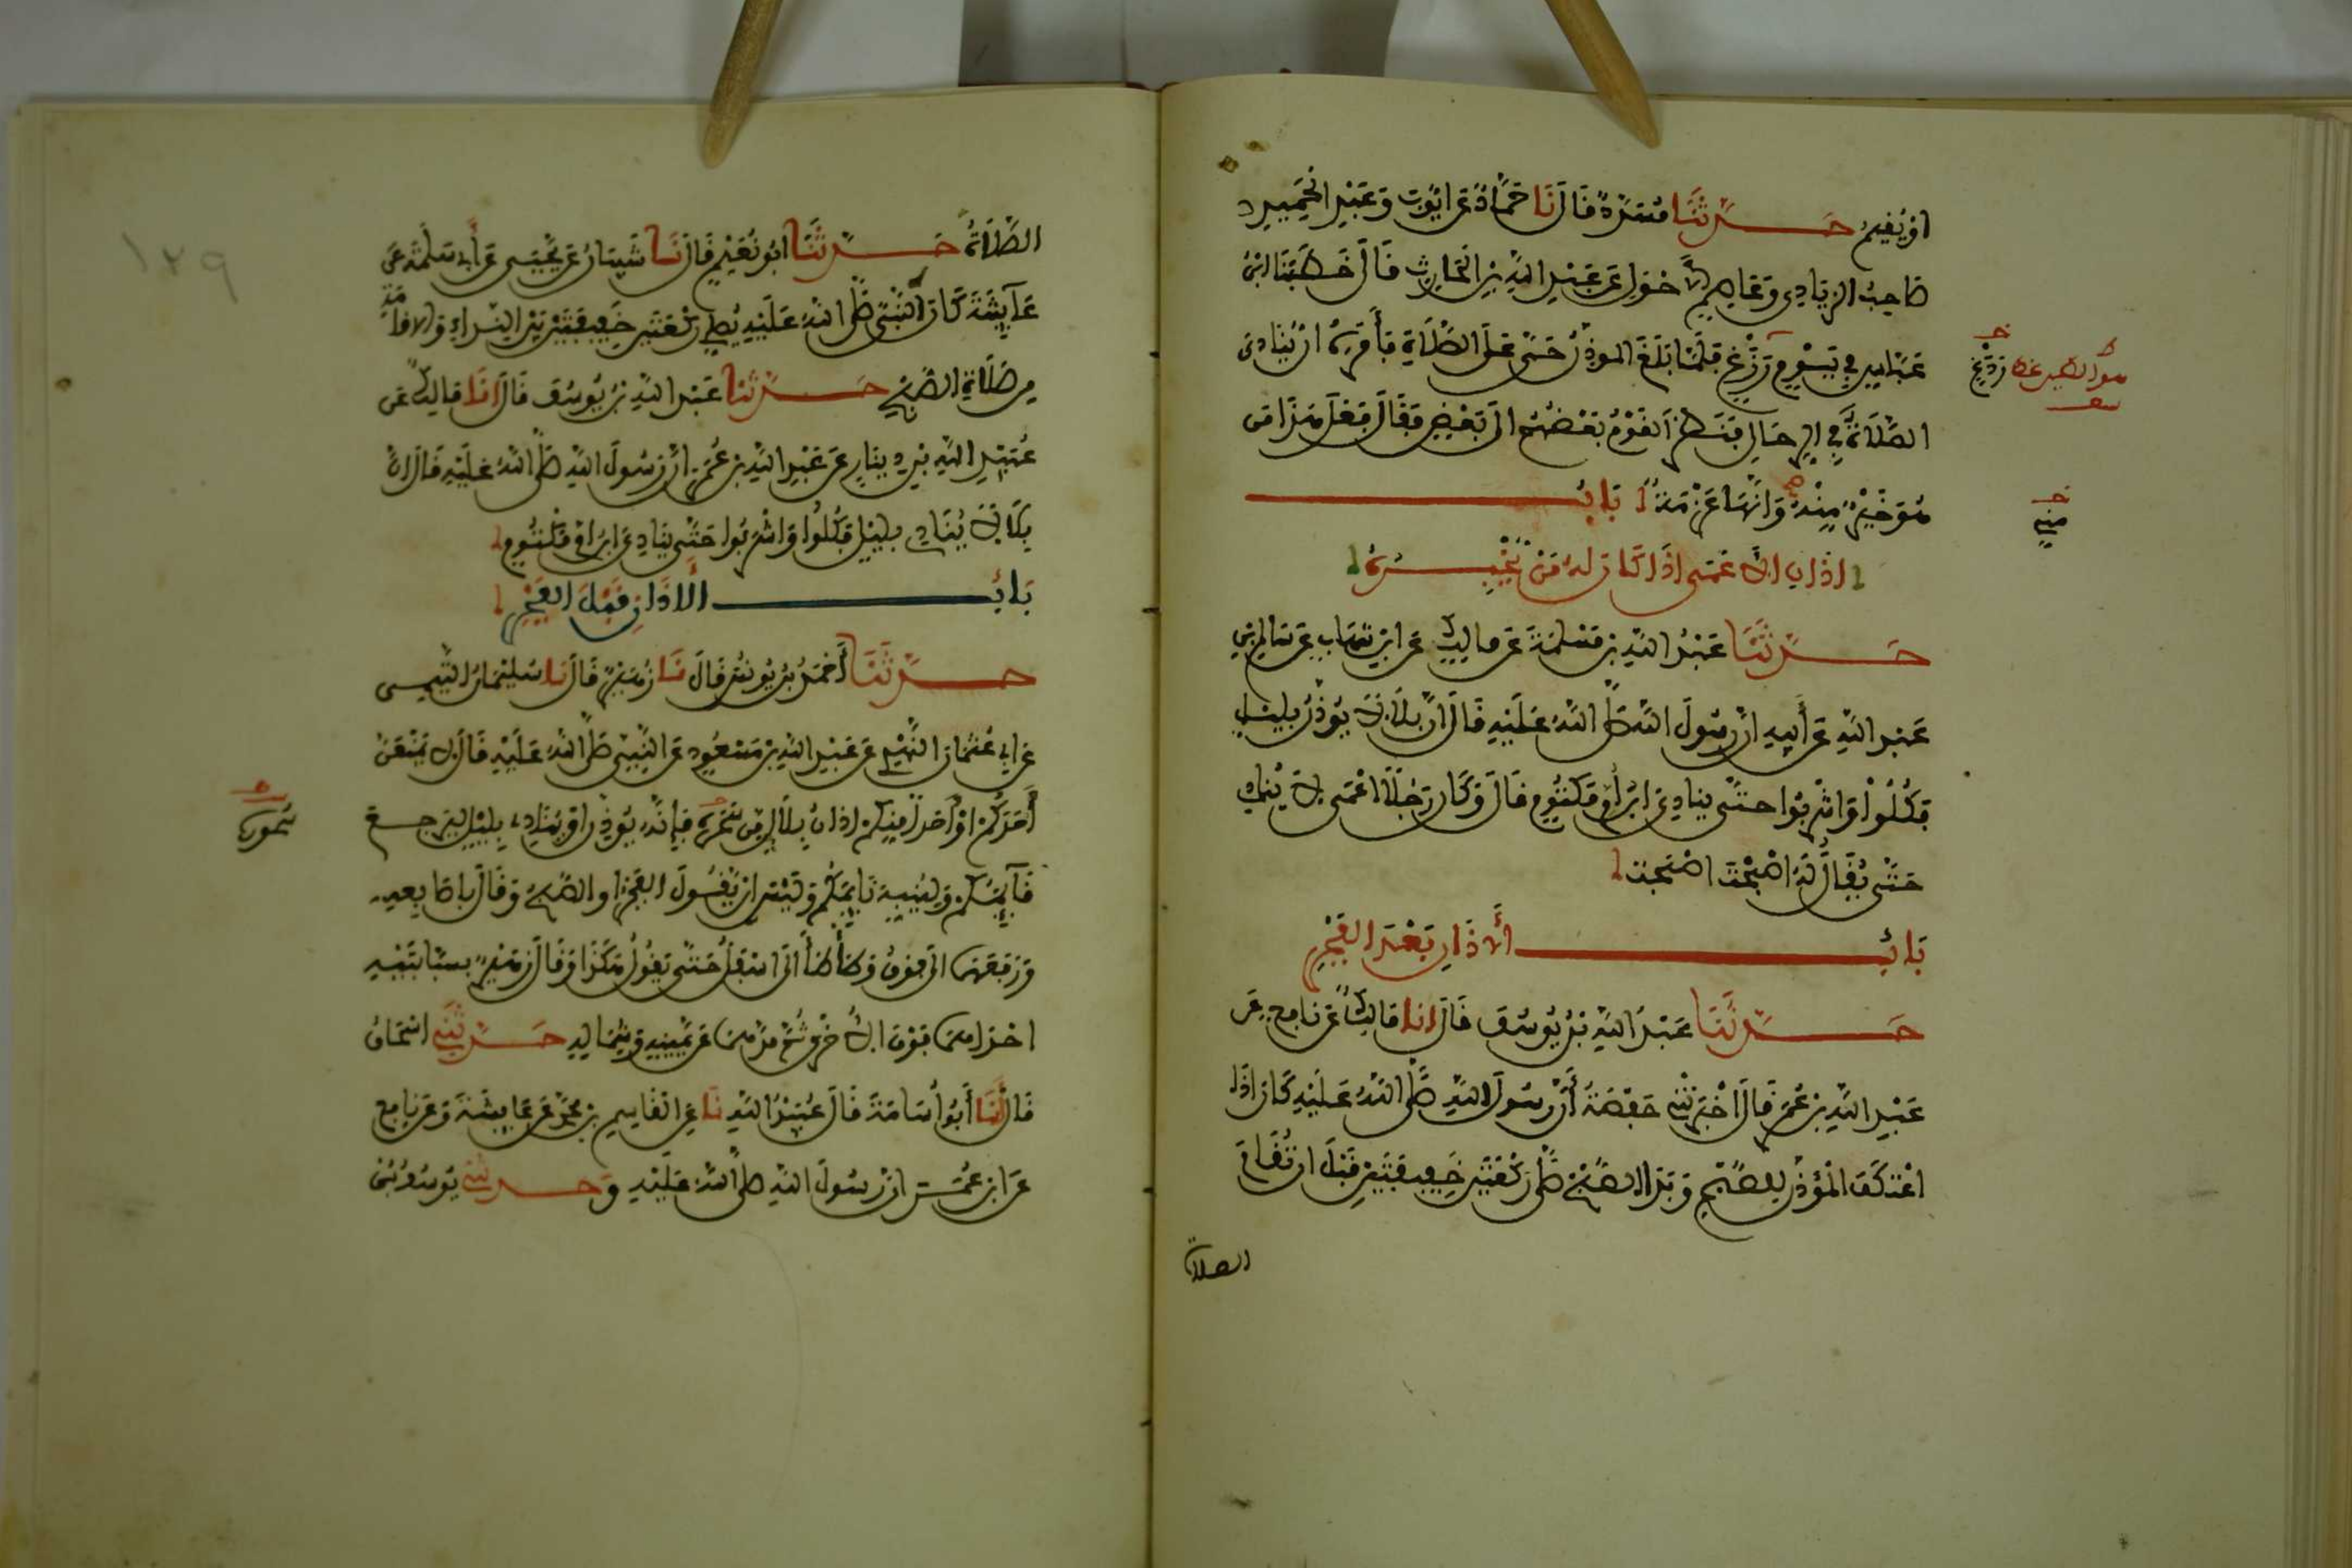 او يُقِيمُ حَدَّثَنَا مُسَدَّدٌ قَالَ نَا حَمَّادٌ عَنْ ايُّوبَ وَعَبْدِ الْحَمِيدِ
صَاحِبِ الزِّيَادِي وَعَاصِمٍ الاحْوَلِ عَنْ عَبْدِ اللَّهِ بْنِ الْحَارِثِ قَالَ خَطَبَنَا ابْنُ
عَبَّاسٍ فِي يَوْمِ رَزْغٍ فَلَمَّا بَلَغَ الْمُوَذِّنُ حَيَّ عَلَى الصَّلَاةِ فَأَمَرَهُ انْ يُنَادِيَ
الصَّلَاةُ فِي الرِّحَالِ فَنَظَرَ الْقَوْمُ بَعْضُهُمُ الَى بَعْضٍ فَقَالَ فَعَلَ هَذَا مَن
هُوَ خَيْرٌ مِنْهُ وَانَّهَا عَزْمَةٌ بَابُ
اذَانِ الاعْمَى اذَا كَانَ لَهُ مَنْ يُخْبِرُهُ
حَدَّثَنَا عَبْدُ اللَّهِ بْنُ مَسْلَمَةَ عَنْ مَالِكٍ عَنِ ابْنِ شِهَابٍ عَنْ سَالِمِ بْنِ
عَبْدِ اللَّهِ عَنْ أَبِيهِ انَّ رَسُولَ اللَّهِ صَلَّى اللَّهُ عَلَيْهِ قَالَ انَّ بِلَالًا يُوَذِّنُ بِلَيْلٍ
فَكُلُوا وَاشْرَبُوا حَتَّى يُنَادِيَ ابْنُ أُمِّ مَكْتُومٍ قَالَ وَكَانَ رَجُلًا اعْمَى لَا يُنَادِي
حَتَّى يُقَالَ لَهُ اصْبَحْتَ اصْبَحْتَ
بَابُ الأَذَانِ بَعْدَ الْفَجْرِ
حَدَّثَنَا عَبْدُ اللَّهِ بْنُ يُوسُفَ قَالَ انَا مَالِكٌ عَنْ نَافِعٍ عَنْ
عَبْدِ اللَّهِ بْنِ عُمَرَ قَالَ اخْبَرَتْنِي حَفْصَةُ أَنَّ رَسُولَ اللَّهِ صَلَّى اللَّهُ عَلَيْهِ كَانَ اذَا
اعْتَكَفَ الْمُؤَذِّنُ لِلصُّبْحِ وَبَدَا الصُّبْحُ صَلَّى رَكْعَتَيْنِ خَفِيفَتَيْنِ قَبْلَ انْ تُقَامَ
الصلاة
رَدْغٍ
مِنِّي
١٢٩
الصَّلَاةُ حَدَّثَنَا ابُو نُعَيْمٍ قَالَ نَا شَيْبَانُ عَنْ يَحْيَى عَنْ أَبِي سَلَمَةَ عَنْ
عَائِشَةَ كَانَ النَّبِيُّ صَلَّى اللَّهُ عَلَيْهِ يُصَلِّي رَكْعَتَيْنِ خَفِيفَتَيْنِ بَيْنَ النِّدَاءِ وَالاقَامَةِ
مِنْ صَلَاةِ الصُّبْحِ حَدَّثَنَا عَبْدُ اللَّهِ بْنُ يُوسُفَ قَالَ انَا مَالِكٌ عَنْ
عَبْدِ اللَّهِ بْنِ دِينَارٍ عَنْ عَبْدِ اللَّهِ بْنِ عُمَرَ انَّ رَسُولَ اللَّهِ صَلَّى اللَّهُ عَلَيْهِ قَالَ انَّ
بِلَالًا يُنَادِي بِلَيْلٍ فَكُلُوا وَاشْرَبُوا حَتَّى يُنَادِيَ ابْنُ امِّ مَكْتُومٍ
بَابُ الأَذَانِ قَبْلَ الْفَجْرِ
حَدَّثَنَا أَحْمَدُ بْنُ يُونُسَ قَالَ نَا زُهَيْرٌ قَالَ نَا سُلَيْمَانُ التَّيْمِي
عَنْ ابِي عُثْمَانَ النَّهْدِيِّ عَنْ عَبْدِ اللَّهِ بْنِ مَسْعُودٍ عَنِ النَّبِيِّ صَلَّى اللَّهُ عَلَيْهِ قَالَ لَا يَمْنَعَنَّ
أَحَدَكُمْ اوْ أَحَدًا مِنْكُمْ اذَانُ بِلَالٍ مِنْ سَحَرِهِ فَإِنَّهُ يُوَذِّنُ اوْ يُنَادِي بِلَيْلٍ لِيَرْجِعَ
قَآئِمُكُمْ وَلِيُنَبِّهَ نَائِمَكُمْ وَلَيْسَ انْ يَقُولَ الْفَجْرُ او الصُّبْحُ وَقَالَ بِاصَابِعِهِ
وَرَفَعَهَا الَى فَوْقُ وَطَأْطَأَ الَى اسْفَلُ حَتَّى يَقُولَ هَكَذَا وَقَالَ زُهَيْرٌ بِسَبَّابَتَيْهِ
احْدَاهُمَا فَوْقَ الاخْرَى ثُمَّ مَدَّهُمَا عَنْ يَمِينِهِ وَشِمَالِهِ حَدَّثَنِي اسْحَاقُ
قَالَ أَنَا أَبُو أُسَامَةَ قَالَ عُبَيْدُ اللَّهِ نَا عَنِ الْقَاسِمِ بْنِ مُحَمَّدٍ عَنْ عَائِشَةَ وَعَنْ نَافِعٍ
عَنِ ابْنِ عُمَرَ انَّ رَسُولَ اللَّهِ صَلَّى اللَّهُ عَلَيْهِ وَحَدَّثَنِي يُوسُفُ بْنُ
سُحُورِهِ